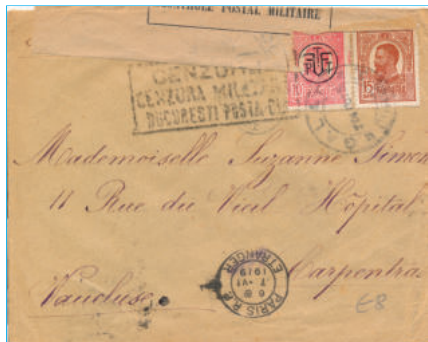 CONTROLE POSTAL MILITAIRE
CENZURAT
CENZURA MILITARA
BUCURESTI POSTA
10
15
Mademoiselle Suzanne Simon
11 Rue du Vieil Hôpital
Carpentras
Vaucluse
PARIS R.P.
ETRANGER
6
7 - VI
1919
E8